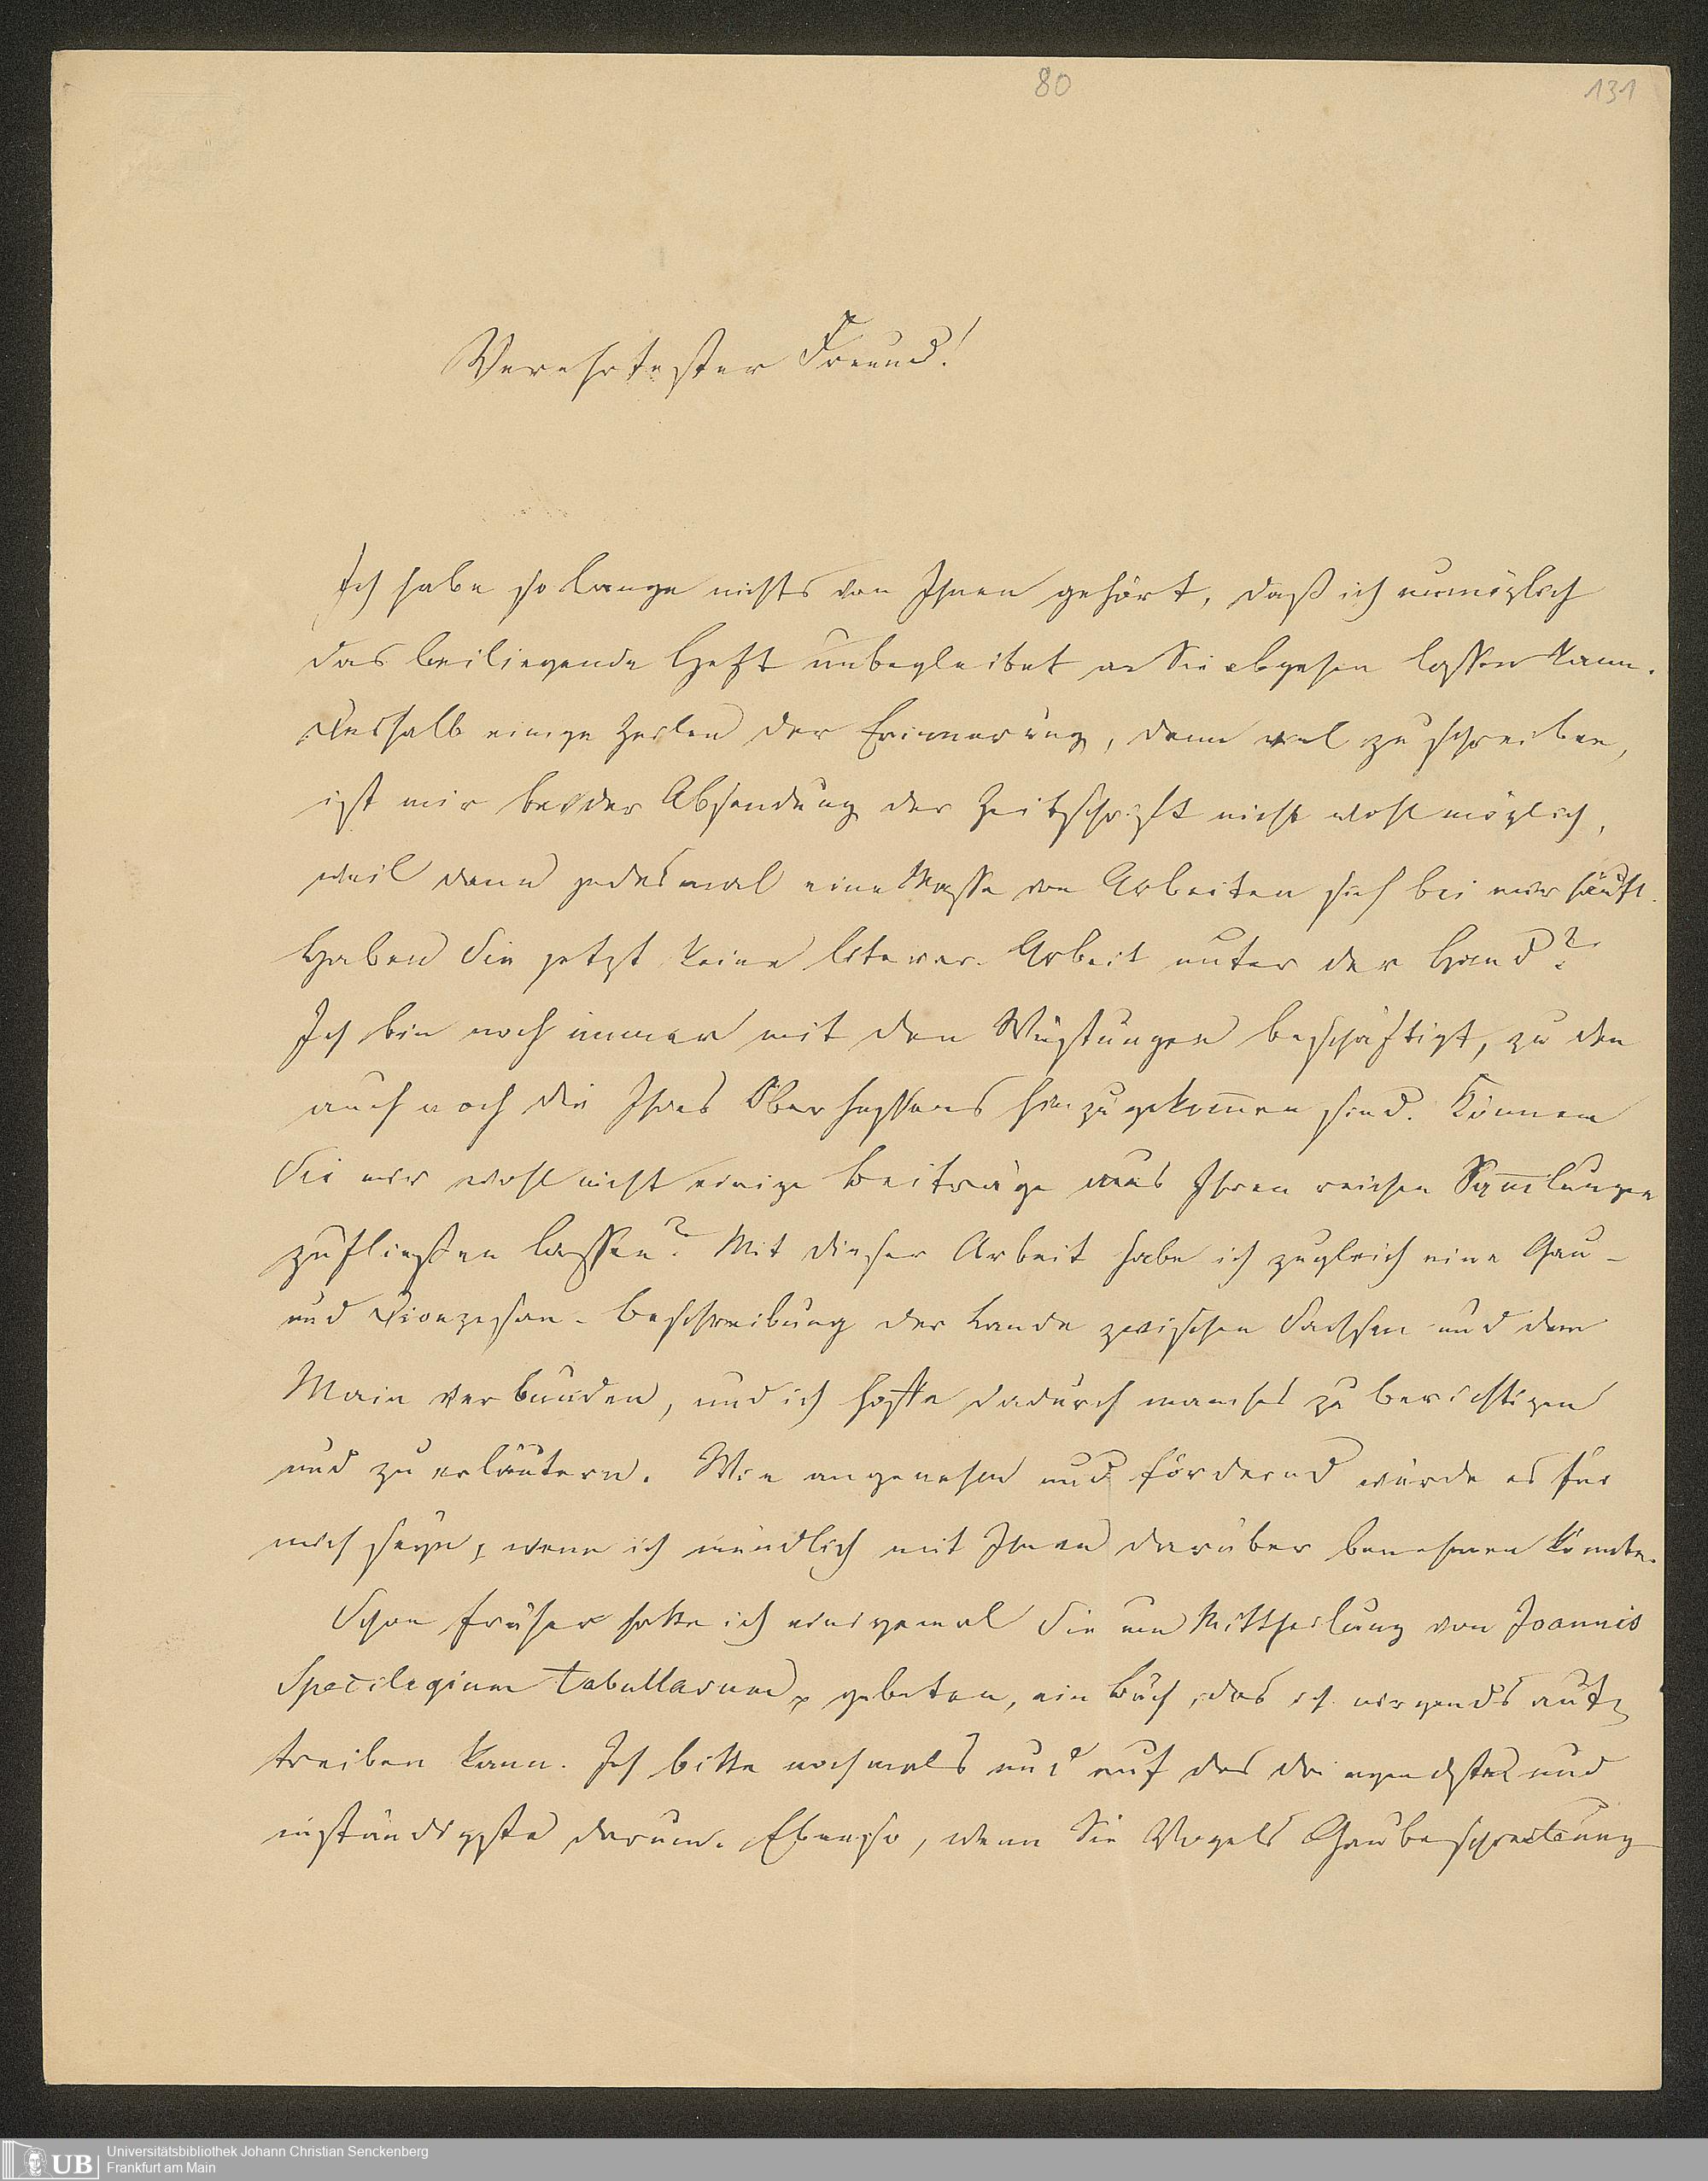 80
131
Verehrtester Freund!
Ich habe so lange nichts von Ihnen gehört, daß ich unmöglich
das beiliegende Heft unbegleitet an Sie abgehen lassen kann.
Deshalb einige Zeilen der Erinnerung, denn viel zu schreiben,
ist mir bei der Absendung der Zeitschrift nicht wohl möglich,
weil dann jedesmal eine Masse von Arbeiten sich bei mir häuft.
Haben Sie jetzt keine literar. Arbeit unter der Hand?
Ich bin noch immer mit den Wüstungen beschäftigt, zu den
auch noch die Ihres Oberhessens hinzugekom̅en sind. Können
Sie mir wohl nicht einige Beiträge aus Ihren reichen Sam̅lungen
zufließen lassen? Mit dieser Arbeit habe ich zugleich eine Gau-
und Diozesan-Beschreibung der Lande zwischen Sachsen und dem
Main verbunden, und ich hoffe dadurch manches zu berichtigen
und zu erläutern. Wie angenehm und fördernd würde es für
mich seyn, wenn ich mündlich mit Ihnen darüber benehmen könnte.
Schon früher hatte ich einigemal Sie um Mittheilung von Joannis
Specilegium tabullarum gebeten, ein Buch, das ich nirgends auf
treiben kann. Ich bitte nochmals und auf das dringendste und
inständigste darum. Ebenso, wenn Sie Vogels Gaubeschreibung
Universitätsbibliothek Johann Christian Senckenberg
UB Frankfurt am Main